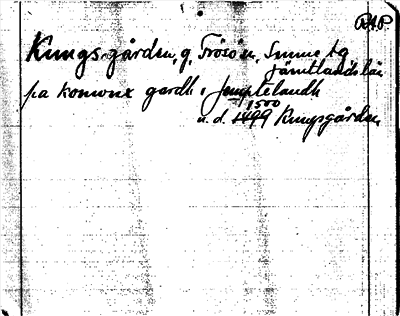 RAP
Kungsgården, g, Frösö sn, Sunne tg
Jämtlands län
pa konwnx gardh i Jemptelandh
u.d. 1499 1500 Kungsgården